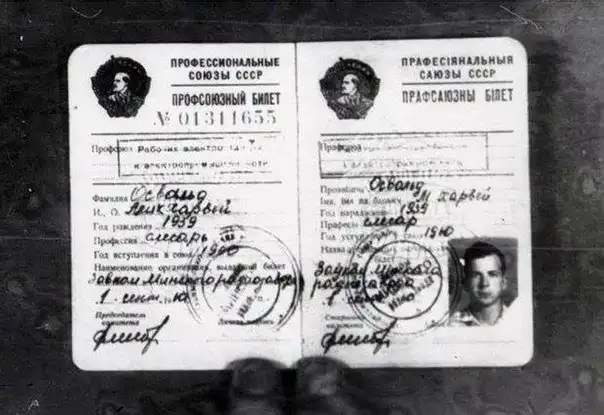 ПРОФЕССИОНАЛЬНЫЕ
СОЮЗЫ СССР
ПРОФСОЮЗНЫЙ БИЛЕТ
№ 01311655
Рабочих электростанций
и электропромышленности
Фамилия Освальд
И., О. Ли Харвей
Год рождения 1939
Профессия слесарь
Год вступления в союз 1960
Наименование организации, выдавшей билет
Завком Минского радиозавода
1 сент.
Председатель
комитета
ПРАФЕСІЯНАЛЬНЫЯ
САЮЗЫ СССР
ПРАФСАЮЗНЫ БІЛЕТ
Прозвішча Освальд
Імя, імя па бацьку Харвей
Год нараджэння 1939
Прафесія слесар
Год 1960
Заўком Мінскага
радыёзавода
1
комитета